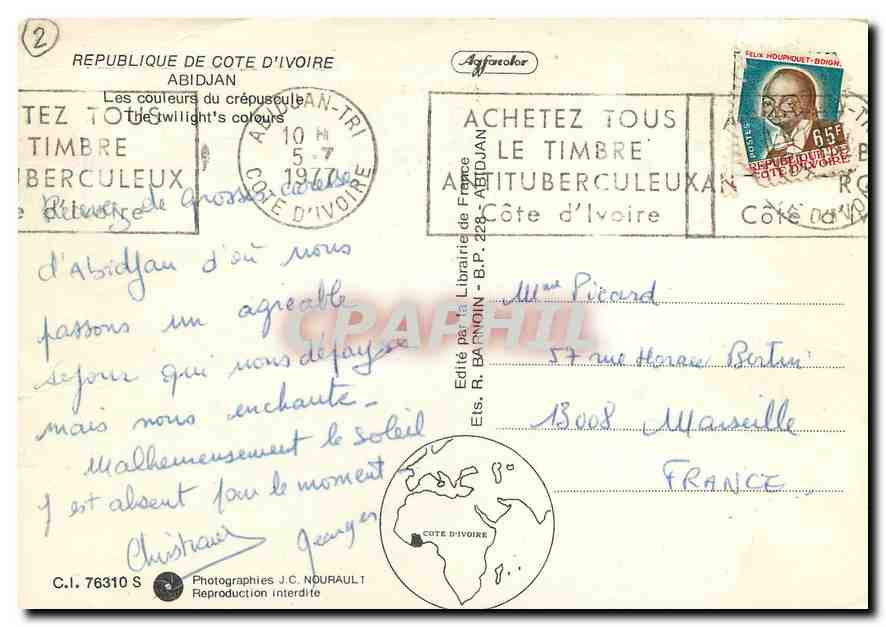 2
REPUBLIQUE DE COTE D'IVOIRE
ABIDJAN
Les couleurs du crépuscule
The twilight's colours
Agfacolor
TEZ TOUS
TIMBRE
UBERCULEUX
e d'Ivoire
ABIDJAN-TRI
10 H
5-7
1977
COTE D'IVOIRE
ACHETEZ TOUS
LE TIMBRE
ANTITUBERCULEUX
Côte d'Ivoire
FELIX HOUPHOUET-BOIGN
POSTES
65F
REPUBLIQUE DE
COTE D'IVOIRE
Recevez de grosses caresses
d'Abidjan d'où nous
passons un agréable
séjour qui nous dépayse
mais nous enchante_
Malheureusement le soleil
y est absent pour le moment_
Christiane Georges
Mme Picard
57 rue Horace Bertin
13008 Marseille
FRANCE
Edité par la Librairie de France
Ets. R. BARNOIN - B.P. 228 - ABIDJAN
CPAPHIL
COTE D'IVOIRE
C.I. 76310 S
Photographies J.C. NOURAULT
Reproduction interdite